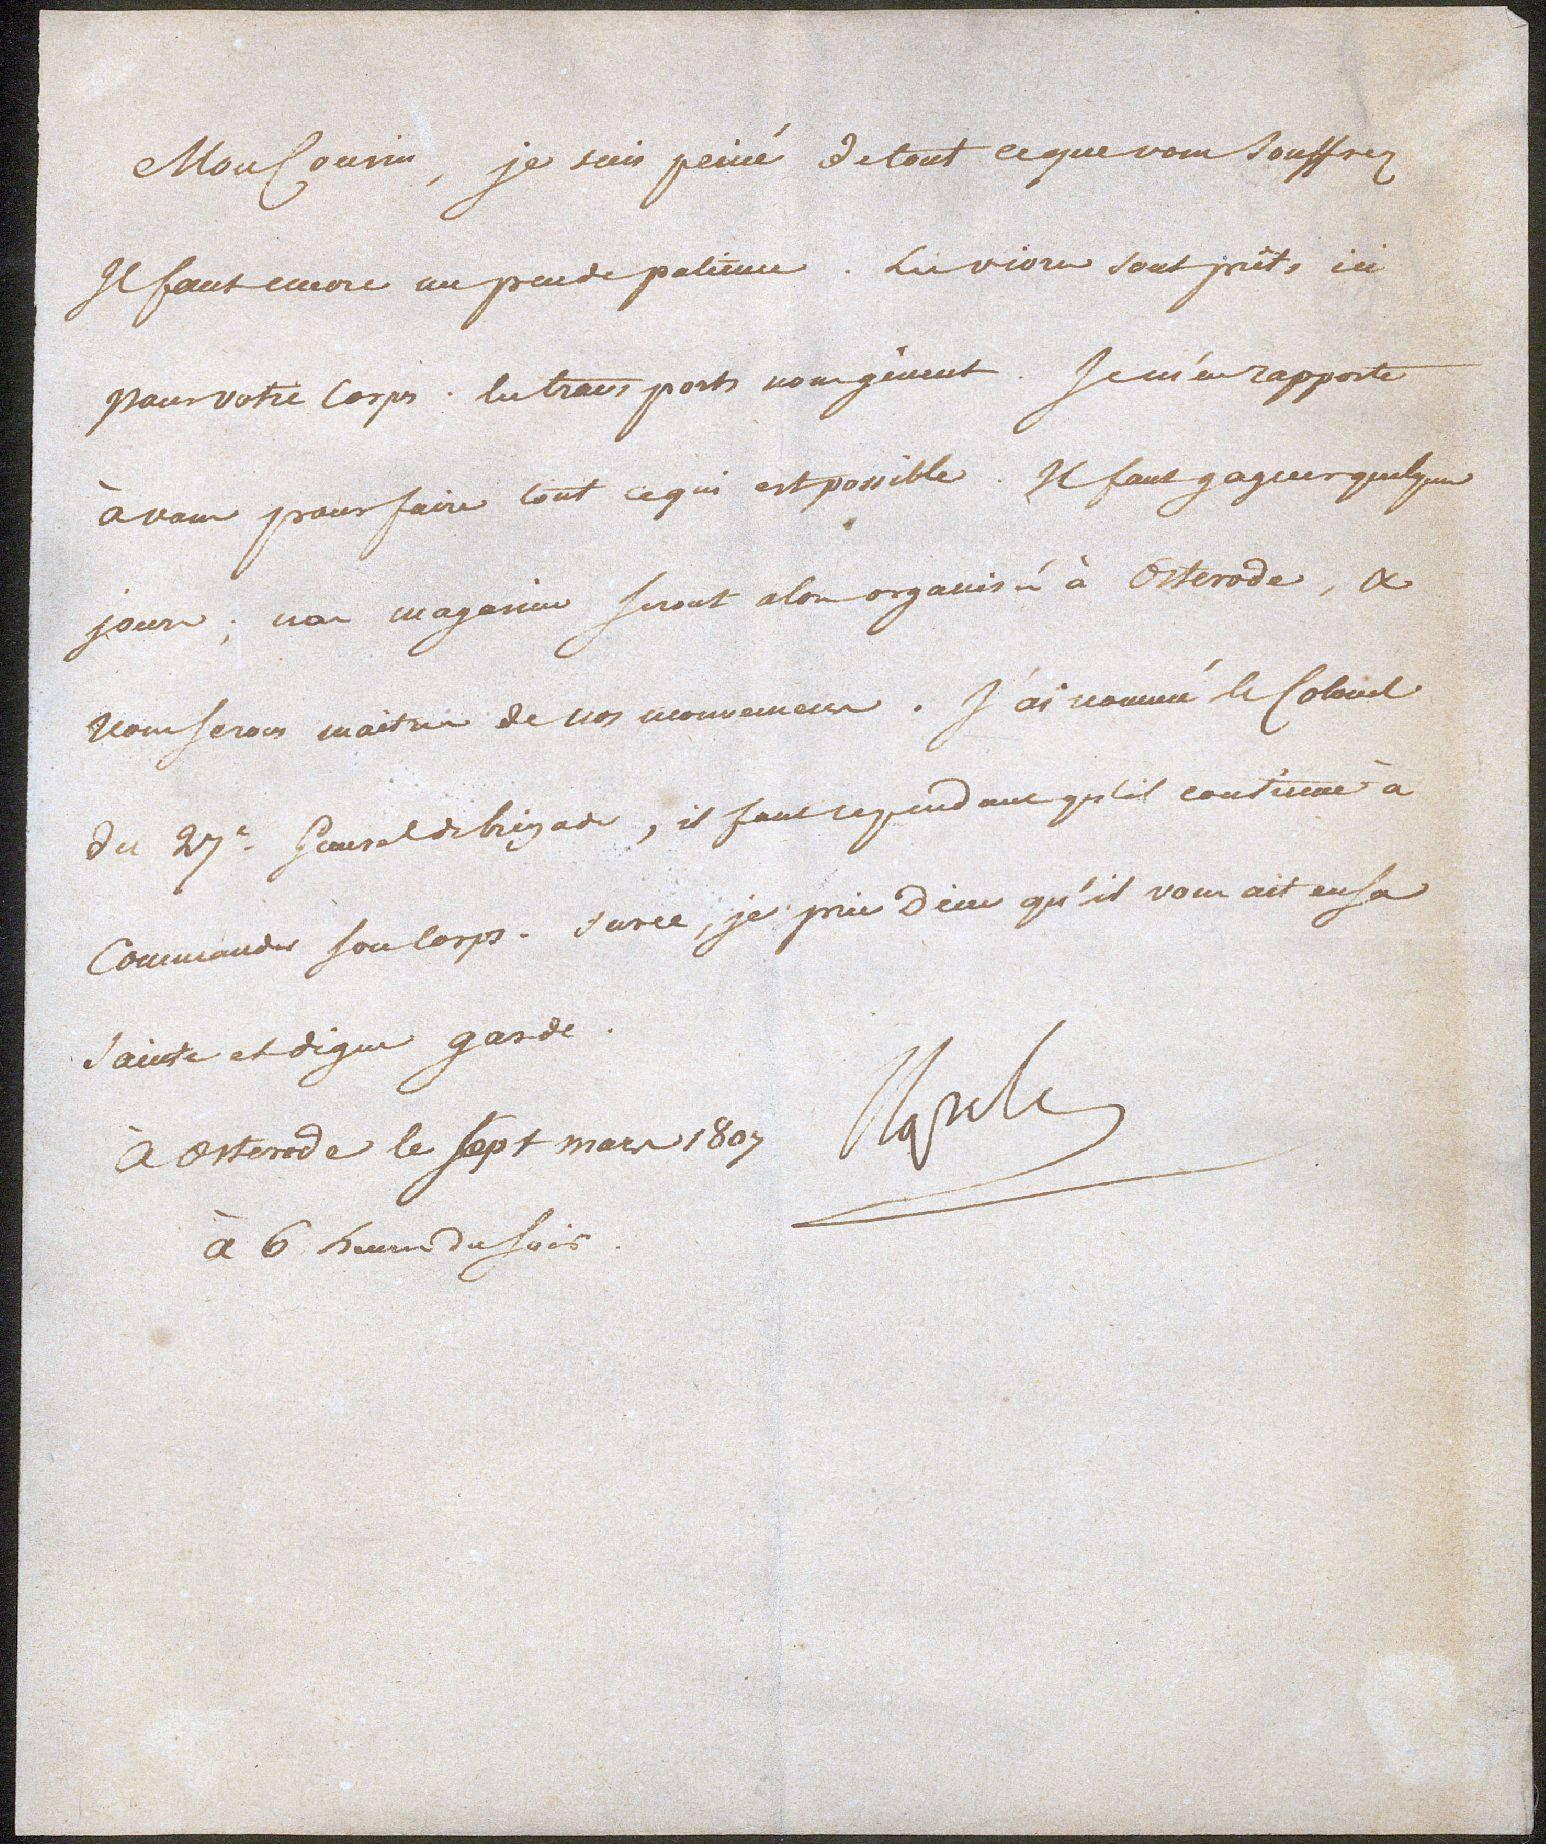 Mon Cousin, je suis peiné de tout ce que vous souffrez
Il faut encore un peu de patience. Les vivres sont prêts ici
pour votre Corps. les transports nous gênent. Je m'en rapporte
à vous pour faire tout ce qui est possible. Il faut gagner quelques
jours; nos magasins seront alors organisés à Osterode, &
nous serons maîtres de nos mouvemens. J'ai nommé le Colonel
du 27e. Général de brigade, il faut cependant qu'il continue à
Commander son Corps. Sur ce, je prie Dieu qu'il vous ait en sa
Sainte et digne garde.
à Osterode le sept mars 1807
à 6 heures du soir.